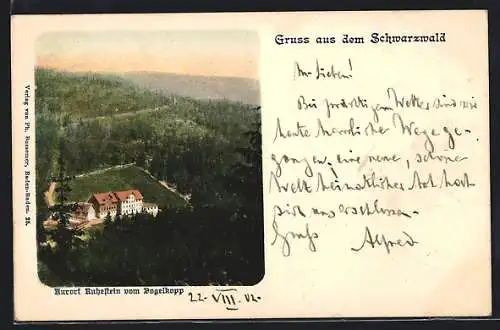 Gruss aus dem Schwarzwald
Ihr Lieben!
Bei prächtigem Wetter sind wir
heute herrliche Wege ge-
gangen, eine neue, schöne
Welt heimatlicher Art hat
sich uns erschlossen.
Gruß Alfred
Verlag von Ph. Bussemer, Baden-Baden. 25.
Kurort Ruhestein vom Vogelkopp
22. VIII. 02.